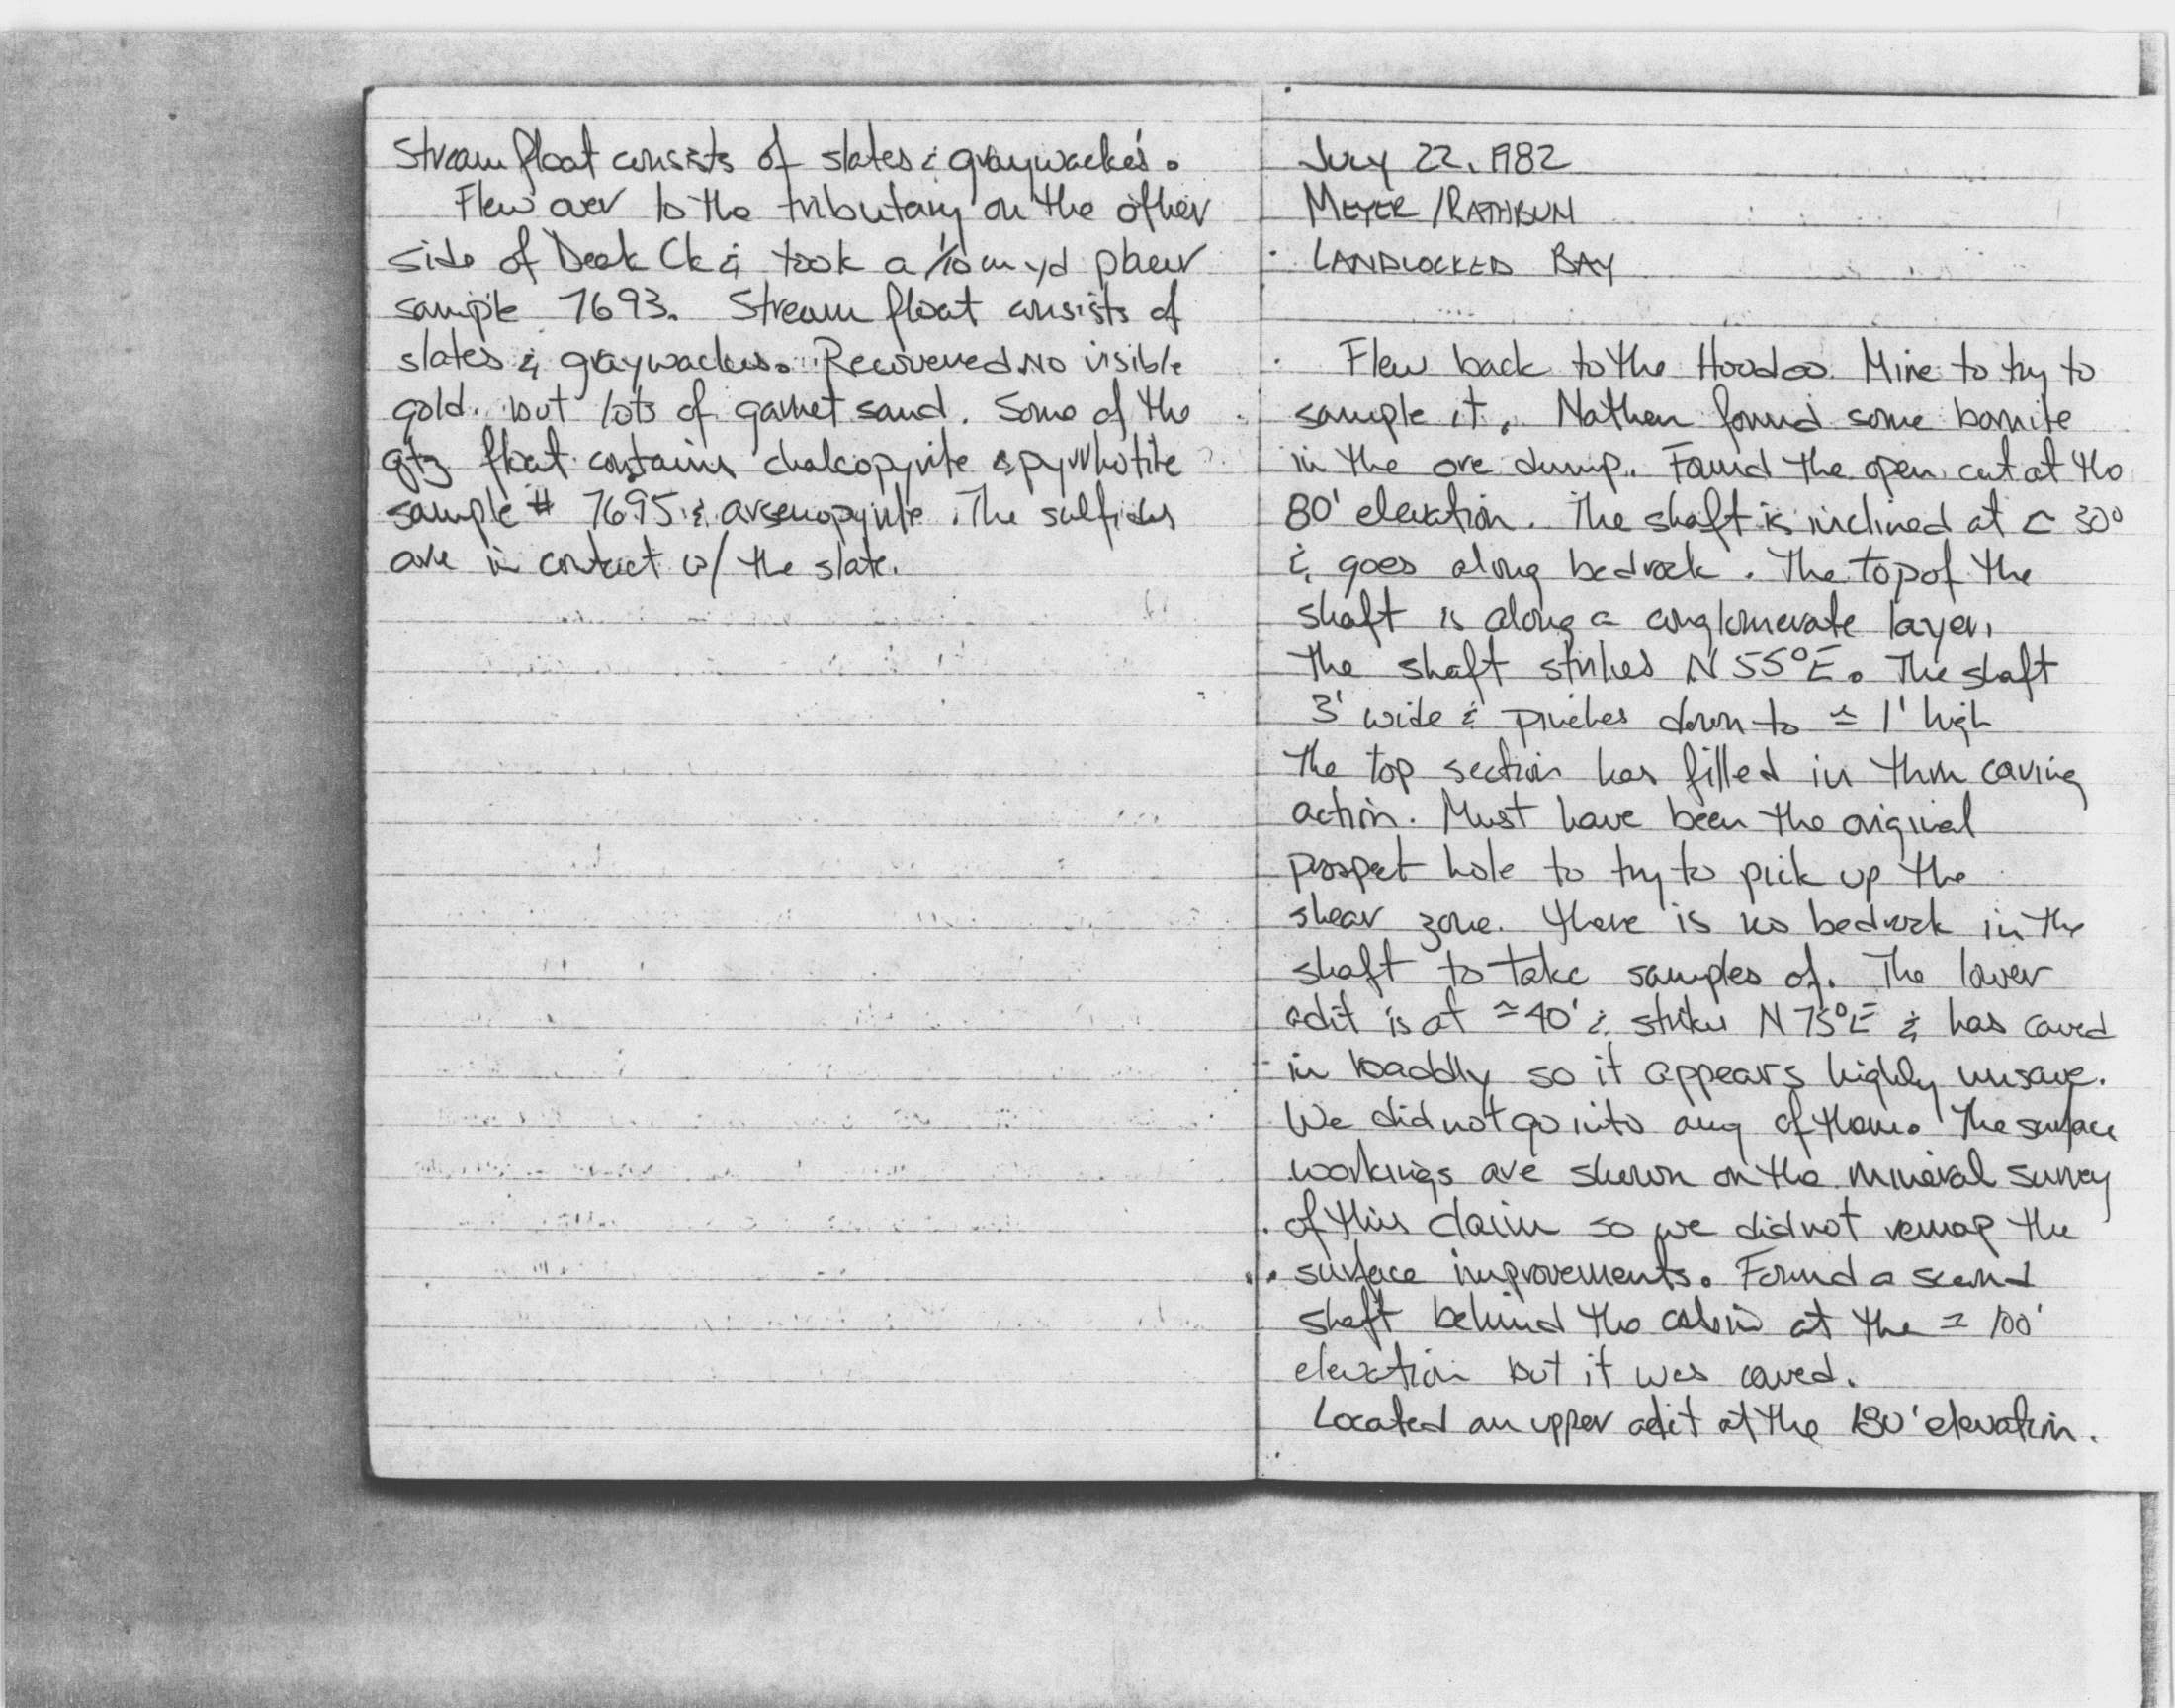 Stream float consists of slates & graywackes.
Flew over to the tributary on the other
side of Deek Ck & took a 1/10 cu yd placer
sample 7693. Stream float consists of
slates & graywackes. Recovered no visible
gold but lots of garnet sand. Some of the
qtz float contains chalcopyrite & pyrrhotite
sample # 7695 & arsenopyrite. The sulfides
are in contact w/ the slate.
July 22, 1982
MEYER/RATHBUN
LANDLOCKED BAY
Flew back to the Hoodoo Mine to try to
sample it. Nathan found some bornite
in the ore dump. Found the open cut at the
80' elevation. The shaft is inclined at 30°
& goes along bedrock. The top of the
shaft is along a conglomerate layer.
The shaft strikes N 55° E. The shaft
3' wide & pinches down to ≈ 1' high
The top section has filled in thru caving
action. Must have been the original
prospect hole to try to pick up the
shear zone. There is no bedrock in the
shaft to take samples of. The lower
adit is at ≈ 40' & strikes N 75° E & has caved
in baddly so it appears highly unsave.
We did not go into any of them. The surface
workings are shown on the mineral survey
of this claim so we did not remap the
surface improvements. Found a second
shaft behind the cabin at the ≈ 100'
elevation but it was caved.
Located an upper adit at the elevation.